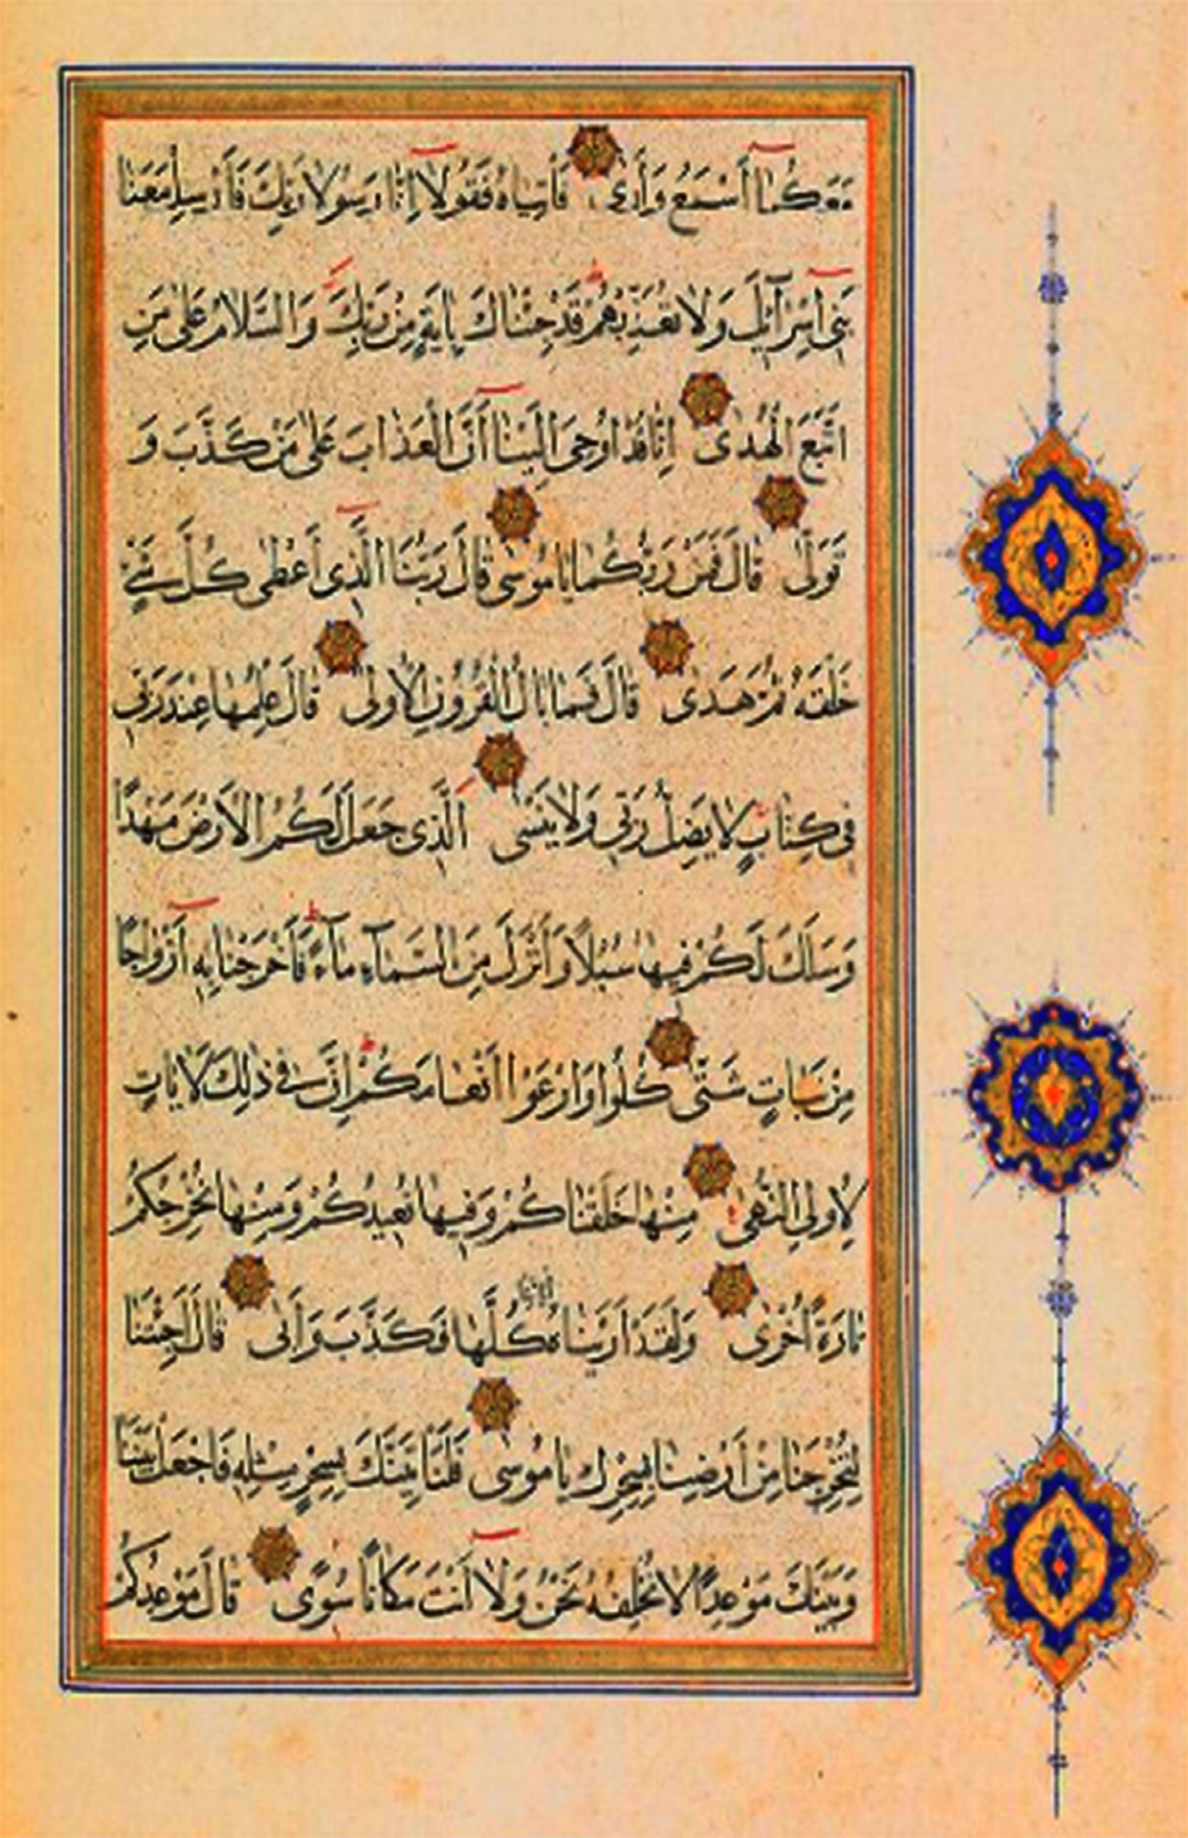 مَعَكُمَا أَسْمَعُ وَأَرَىٰ فَأْتِيَاهُ فَقُولَا إِنَّا رَسُولَا رَبِّكَ فَأَرْسِلْ مَعَنَا
بَنِي إِسْرَآئِيلَ وَلَا تُعَذِّبْهُمْ قَدْ جِئْنَاكَ بِآيَةٍ مِنْ رَبِّكَ وَالسَّلَامُ عَلَىٰ مَنِ
اتَّبَعَ الْهُدَىٰ إِنَّا قَدْ أُوحِيَ إِلَيْنَا أَنَّ الْعَذَابَ عَلَىٰ مَنْ كَذَّبَ وَ
تَوَلَّىٰ قَالَ فَمَنْ رَبُّكُمَا يَا مُوسَىٰ قَالَ رَبُّنَا الَّذِي أَعْطَىٰ كُلَّ شَيْءٍ
خَلْقَهُ ثُمَّ هَدَىٰ قَالَ فَمَا بَالُ الْقُرُونِ الْأُولَىٰ قَالَ عِلْمُهَا عِنْدَ رَبِّي
فِي كِتَابٍ لَا يَضِلُّ رَبِّي وَلَا يَنْسَىٰ الَّذِي جَعَلَ لَكُمُ الْأَرْضَ مَهْدًا
وَسَلَكَ لَكُمْ فِيهَا سُبُلًا وَأَنْزَلَ مِنَ السَّمَآءِ مَآءً فَأَخْرَجْنَا بِهِ أَزْوَاجًا
مِنْ نَبَاتٍ شَتَّىٰ كُلُوا وَارْعَوْا أَنْعَامَكُمْ إِنَّ فِي ذَٰلِكَ لَآيَاتٍ
لِأُولِي النُّهَىٰ مِنْهَا خَلَقْنَاكُمْ وَفِيهَا نُعِيدُكُمْ وَمِنْهَا نُخْرِجُكُمْ
تَارَةً أُخْرَىٰ وَلَقَدْ أَرَيْنَاهُ آيَاتِنَا كُلَّهَا فَكَذَّبَ وَأَبَىٰ قَالَ أَجِئْتَنَا
لِتُخْرِجَنَا مِنْ أَرْضِنَا بِسِحْرِكَ يَا مُوسَىٰ فَلَنَأْتِيَنَّكَ بِسِحْرٍ مِثْلِهِ فَاجْعَلْ بَيْنَنَا
وَبَيْنَكَ مَوْعِدًا لَا نُخْلِفُهُ نَحْنُ وَلَا أَنْتَ مَكَانًا سُوًى قَالَ مَوْعِدُكُمْ